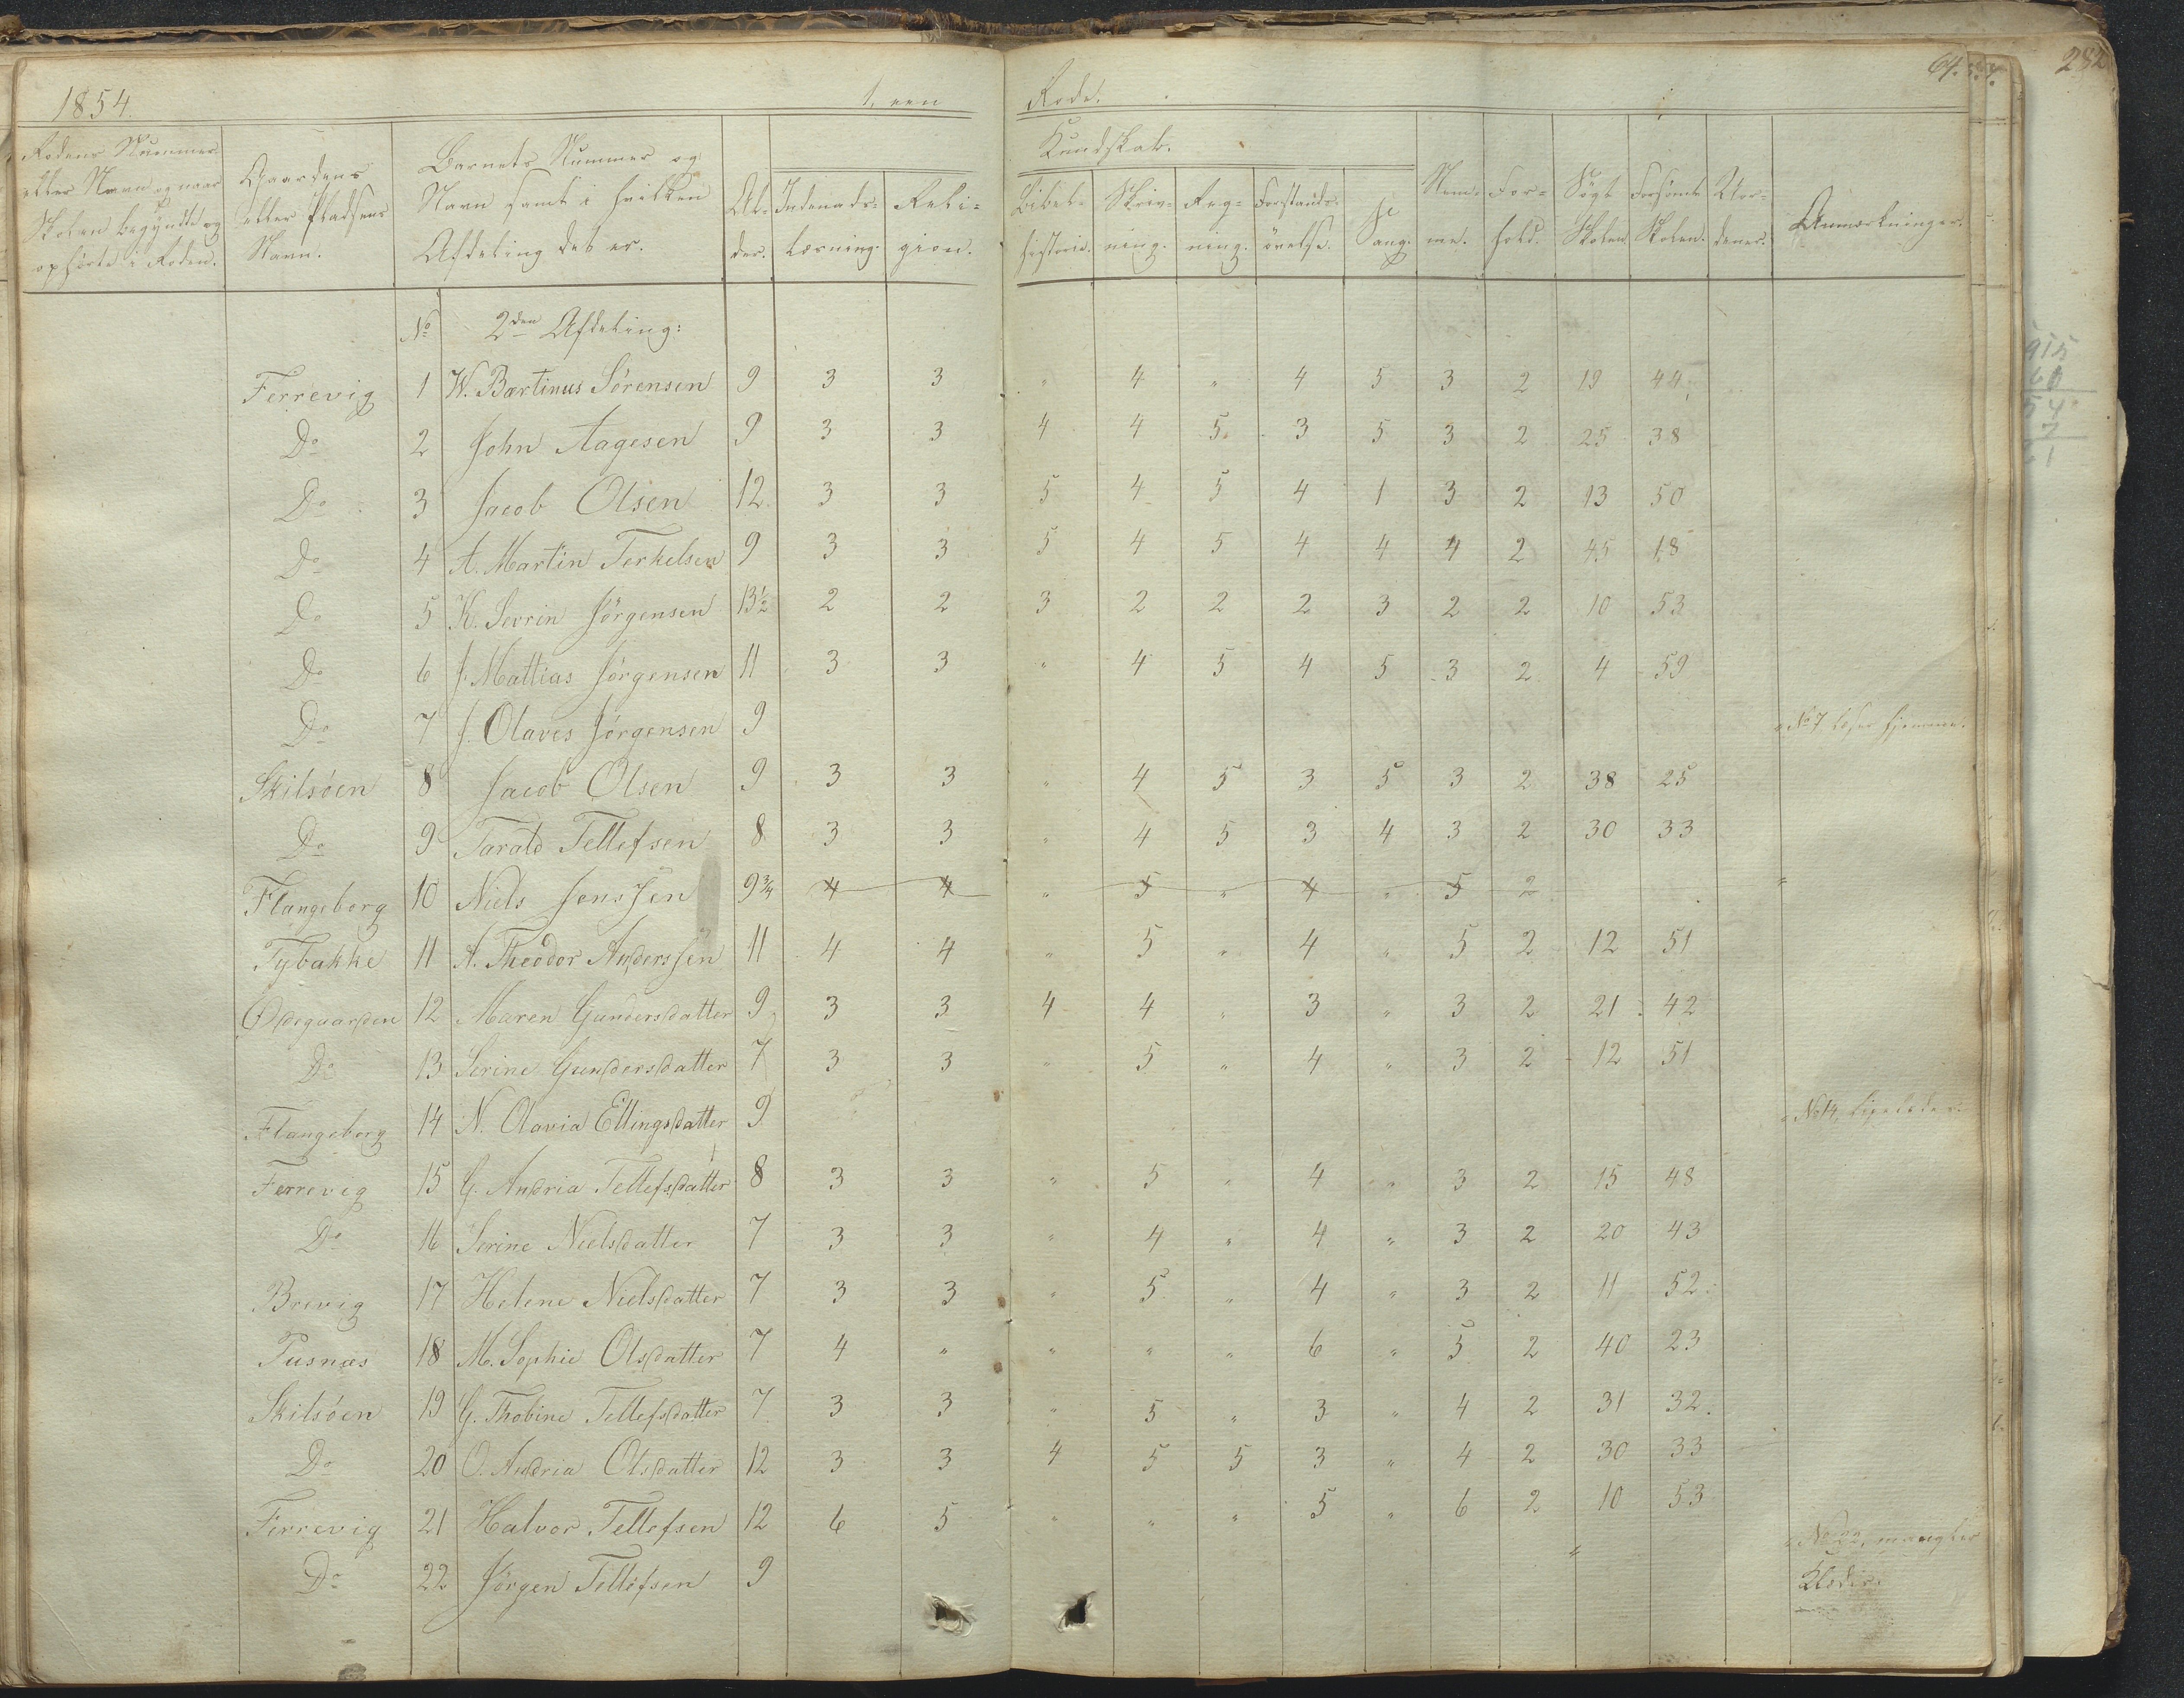 1854. 1. een Rode. 64. 282
Rodens Nummer eller Navn og naar Skolen begyndte og ophörte i Roden. | Gaardens eller Pladsens Navn. | Barnets Nummer og Navn samt i hvilken Afdeling det er. | Al-der. | Indenads-læsning. | Reli-gion. | Kundskab. Bibel-historie. | Skriv-ning. | Reg-ning. | Forstands-övelse. | Sang. | Nem-me. | For-hold. | Søgt Skolen. | Forsømt Skolen. | Anmærkninger.
No 2den Afdeling:
Ferrevig 1 W. Bartinus Sörensen 9 3 3 " 4 " 4 5 3 2 19 44
Do 2 John Aagesen 9 3 3 4 4 5 3 5 3 2 25 38
Do 3 Jacob Olsen 12 3 3 5 4 5 4 1 3 2 13 50
Do 4 A. Martin Terkelsen 9 3 3 5 4 5 4 4 4 2 45 18
Do 5 K. Sevrin Jörgensen 13½ 2 2 3 2 2 2 3 2 2 10 53
Do 6 J. Mattias Jörgensen 11 3 3 " 4 5 4 5 3 2 4 59
Do 7 J. Olaves Jörgensen 9 No 7, læser hjemme.
Skilsöen 8 Jacob Olsen 9 3 3 " 4 5 3 5 3 2 38 25
Do 9 Tarald Tellefsen 8 3 3 " 4 5 3 4 3 2 30 33
Flangeborg 10 Niels Jenssen 9¾ 4 4 " 5 " 4 " 5 2 "
Tybakke 11 A. Theodor Anderssen 11 4 4 " 5 " 4 " 5 2 12 51
Ødegaarden 12 Maren Gundersdatter 9 3 3 4 4 " 3 " 3 2 21 42
Do 13 Serine Gundersdatter 7 3 3 " 5 " 4 " 3 2 12 51
Flangeborg 14 N. Olavia Ellingsdatter 9 No 14, ligeledes.
Ferrevig 15 G. Andria Tellefsdatter 8 3 3 " 5 " 4 " 3 2 15 48
Do 16 Serine Nielsdatter 7 3 3 " 4 " 4 " 3 2 20 43
Brevig 17 Helene Nielsdatter 7 3 3 " 5 " 4 " 3 2 11 52
Pusnæs 18 M. Sophie Olsdatter 7 4 " " " " 6 " 5 2 40 23
Skilsöen 19 G. Thobine Tellefsdatter 7 3 3 " 5 " 3 " 4 2 31 32
Do 20 O. Andria Olsdatter 12 3 3 4 5 5 3 " 4 2 30 33
Ferrevig 21 Halvor Tellefsen 12 6 5 " " " 5 " 6 2 10 53
Do 22 Jörgen Tellefsen 9 " No 22, mangler
Klæder.